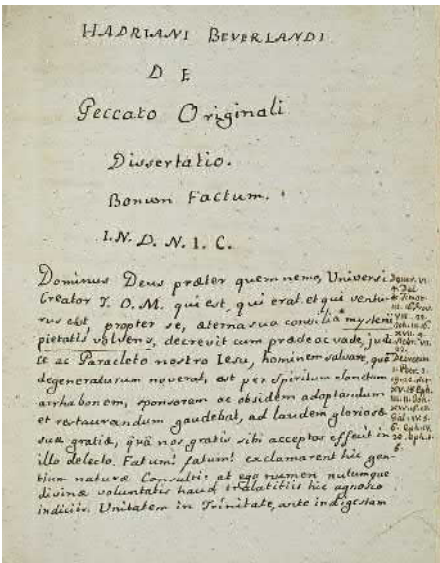 HADRIANI BEVERLANDI
DE
Peccato Originali
Dissertatio.
Bonum Factum.
I. N. D. N. I. C.
Dominus Deus præter quem nemo, Universi
Creator T. O. M. qui est, qui erat et qui ventu-
rus est propter se, æterna sua consilia mysterii
pietatis volvens, decrevit cum præde ac vade, judi-
ce ac Paracleto nostro Iesu, hominem salvare, quē
degeneraturum noverat, est per Spiritum Sanctum
arrhabonem, sponsorem ac obsidem adoptandum
et restaurandum gaudebat, ad laudem gloriosæ
suæ gratiæ, quâ nos gratis sibi acceptos effecit in
illo delecto. Fatum! fatum! exclamarent hic gen-
tium naturæ Consulti: at ego numen nutumque
divinæ voluntatis haud tralatitiis hic agnosco
indiciis. Unitatem in Trinitate, ante indigestam